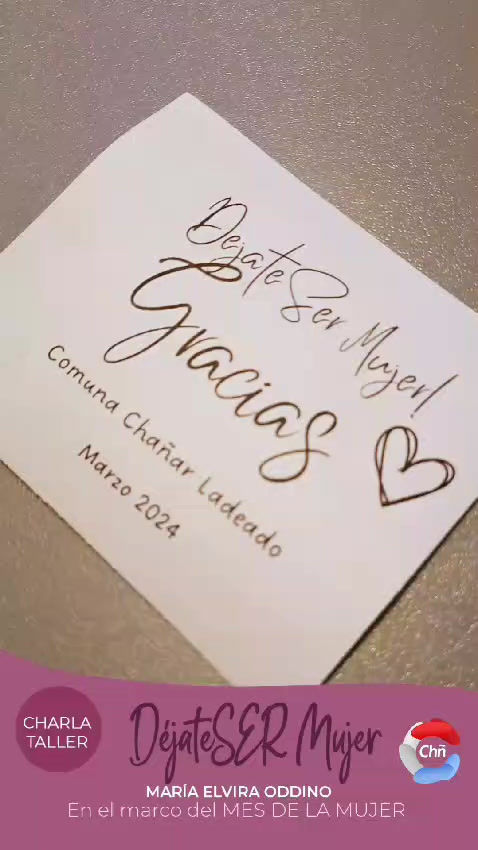 Déjate Ser Mujer!
Gracias
Comuna Chañar Ladeado
Marzo 2024
CHARLA
TALLER
DéjateSER Mujer
Chñ
MARÍA ELVIRA ODDINO
En el marco del MES DE LA MUJER